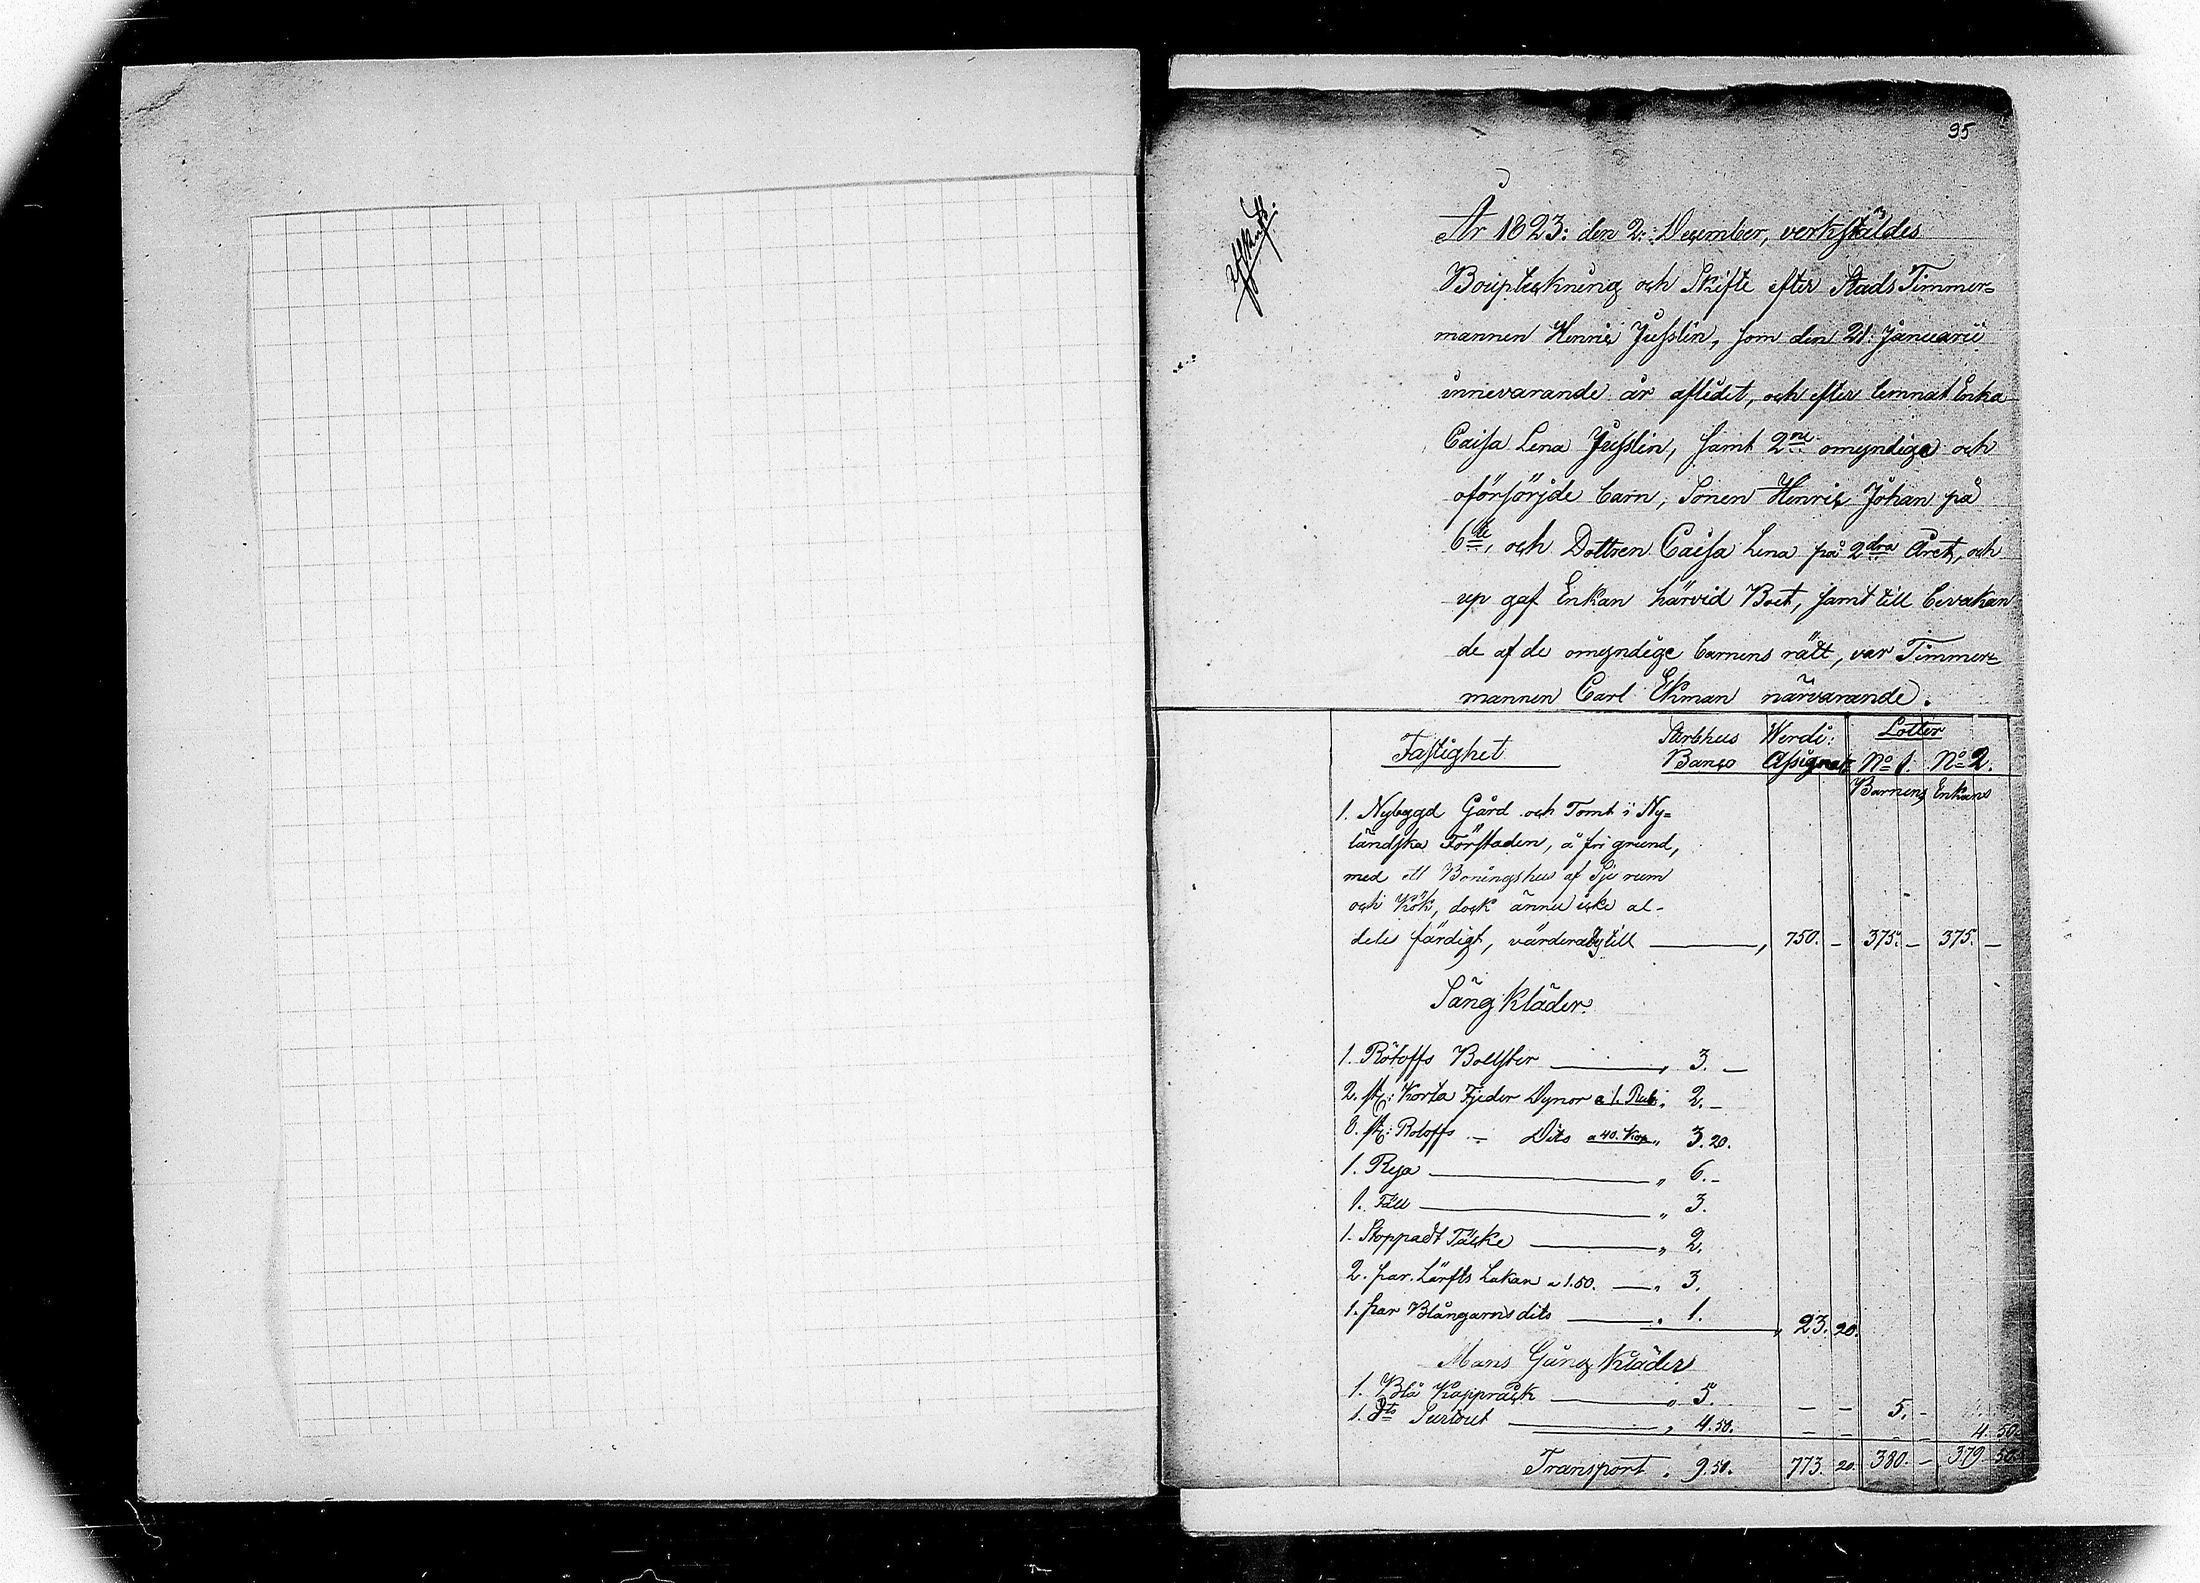 95
År 1823: den 2: December, verkstäldes
Boupteckning och Skifte efter Stads Timmer=
mannen Henric Jusslin, som den 21. Januarii
innevarande år aflidit, och efter lemnat Enka
Caisa Lena Jusslin, samt 2ne omyndiga och
oförsörjde barn, Sonen Henric Johan på
6te, och Dottren Caisa Lena på 2dra Året, och
up gaf Enkan härvid Boet, samt till bevakan
de af de omyndige barnens rätt, var Timmer=
mannen Carl Ekman närvarande.
Fastighet Sterbhus Werdi: Lotter
Banco Assignat: No 1. No 2.
Barnens Enkans
1. Nybygd Gård och Tomt i Ny=
ländska Förstaden, å fri grund,
med ett Boningshus af Sju rum
och Kök, dock ännu icke al-
deles färdigt, värderat till 750. — 375. — 375. —
Säng Kläder.
1. Rötoffs Bolster 3. —
2. st: Korta Fjeder Dynor a 1. Rub. 2. —
8. st: Rotoffs Dito a 40. Kop. 3. 20.
1. Rya 6. —
1. Fäll 3.
1. Stoppadt Täcke 2.
2. par. Lärfts Lakan a 1.50. 3.
1. par Blångarns dito 1. 23. 20.
Mans Gång Kläder
1. Blå Kappråck 5. — — 5. —
1. Dto Surtout 4. 50. — — — — 4. 50.
Transport 9. 50. 773. 20. 380. — 379. 50.